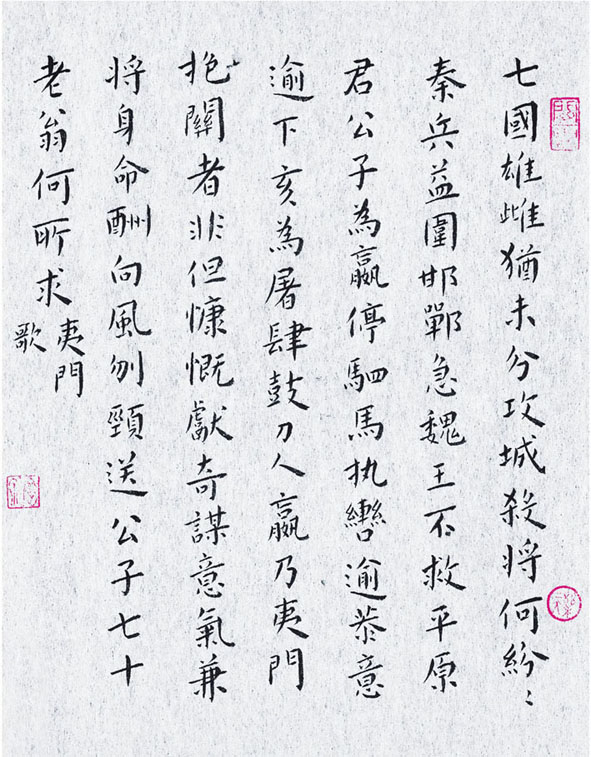 七國雄雌猶未分攻城殺將何紛〻
秦兵益圍邯鄲急魏王不救平原
君公子為嬴停駟馬執轡逾恭意
逾下亥為屠肆鼓刀人嬴乃夷門
抱關者非但慷慨獻奇謀意氣兼
將身命酬向風刎頸送公子七十
老翁何所求
夷門
歌